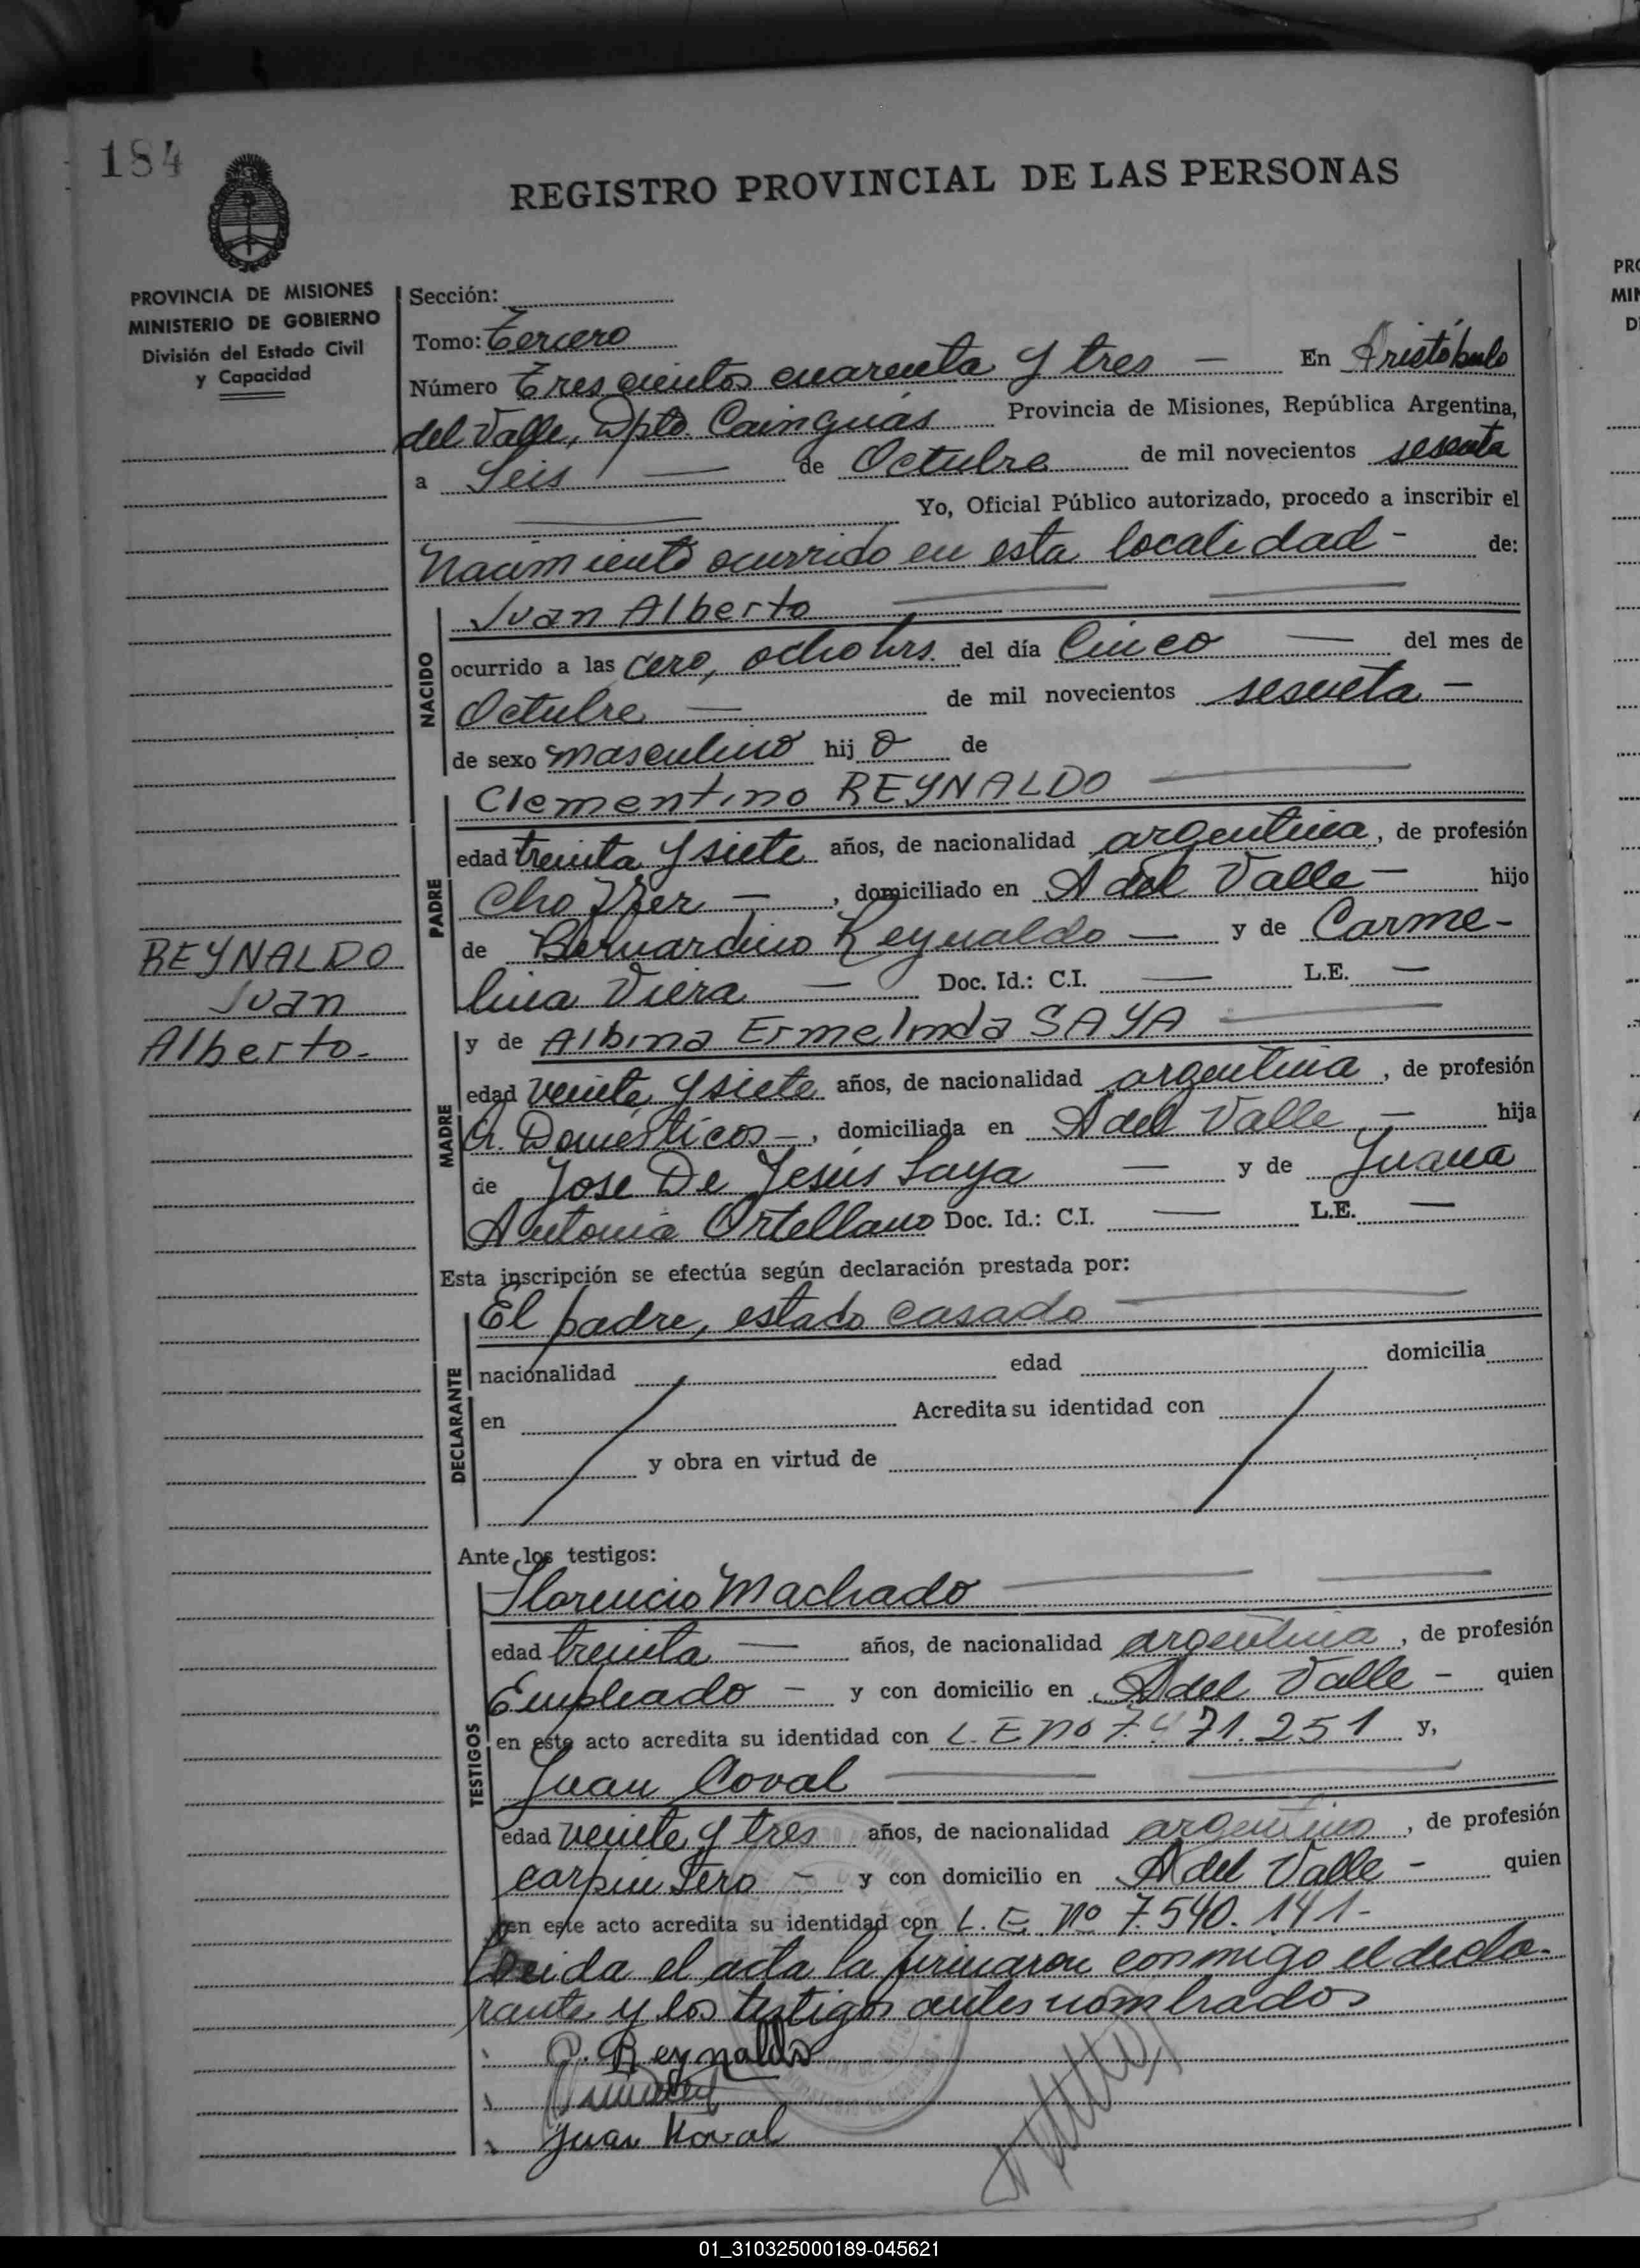 184
REGISTRO PROVINCIAL DE LAS PERSONAS
PROVINCIA DE MISIONES
MINISTERIO DE GOBIERNO
División del Estado Civil
y Capacidad
Sección:
Tomo: Tercero
Número Trescientos cuarenta y tres — En Aristóbulo
del Valle, Dpto. Cainguás Provincia de Misiones, República Argentina,
a Seis — de Octubre de mil novecientos sesenta
Yo, Oficial Público autorizado, procedo a inscribir el
Nacimiento ocurrido en esta localidad - de:
NACIDO
Juan Alberto
ocurrido a las cero, ocho hrs. del día Cinco — del mes de
Octubre — de mil novecientos sesenta —
de sexo masculino hij o de
PADRE
Clementino REYNALDO
edad treinta y siete años, de nacionalidad argentina, de profesión
Chofer —, domiciliado en A del Valle — hijo
de Bernardino Reynaldo — y de Carme-
lina Viera — Doc. Id.: C.I. — L.E. —
REYNALDO
Juan
Alberto.-
MADRE
y de Albina Ermelinda SAYA
edad veinte y siete años, de nacionalidad argentina, de profesión
Q. Domésticos —, domiciliada en A del Valle — hija
de José De Jesús Saya — y de Juana
Antonia Ortellano Doc. Id.: C.I. — L.E. —
Esta inscripción se efectúa según declaración prestada por:
DECLARANTE
El padre, estado casado
nacionalidad edad domicilia
en Acredita su identidad con
y obra en virtud de
Ante los testigos:
TESTIGOS
Florencio Machado
edad treinta — años, de nacionalidad argentina, de profesión
Empleado - y con domicilio en A del Valle - quien
en este acto acredita su identidad con L. E nº 7.471.251 y,
Juan Coval
edad veinte y tres años, de nacionalidad argentino, de profesión
carpintero - y con domicilio en A del Valle - quien
en este acto acredita su identidad con L. E. nº 7.540.141-
Leida el acta la firmaron conmigo el decla-
rante y los testigos antes nombrados
C. Reynaldo
Juan Koval
PRO
MIN
D
01_310325000189-045621